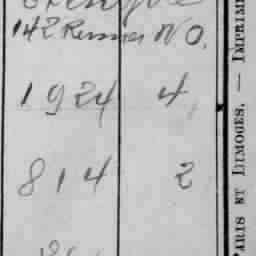 142 Rennes NO.
1924 4
814 2
PARIS ET LIMOGES. — IMPRIME